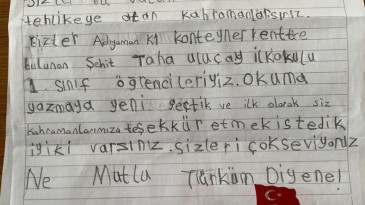 Sizler bu vatan
tehlikeye atan kahramanlarsınız.
Bizler Adıyaman K1 konteynerkentte
bulunan Şehit Taha uluçay ilkokulu
1. sınıf öğrencileriyiz. Okuma
yazmaya yeni geçtik ve ilk olarak siz
kahramanlarımıza teşekkür etmek istedik
iyiki varsınız. sizleri çok seviyoruz
Ne Mutlu Türküm Diyene!